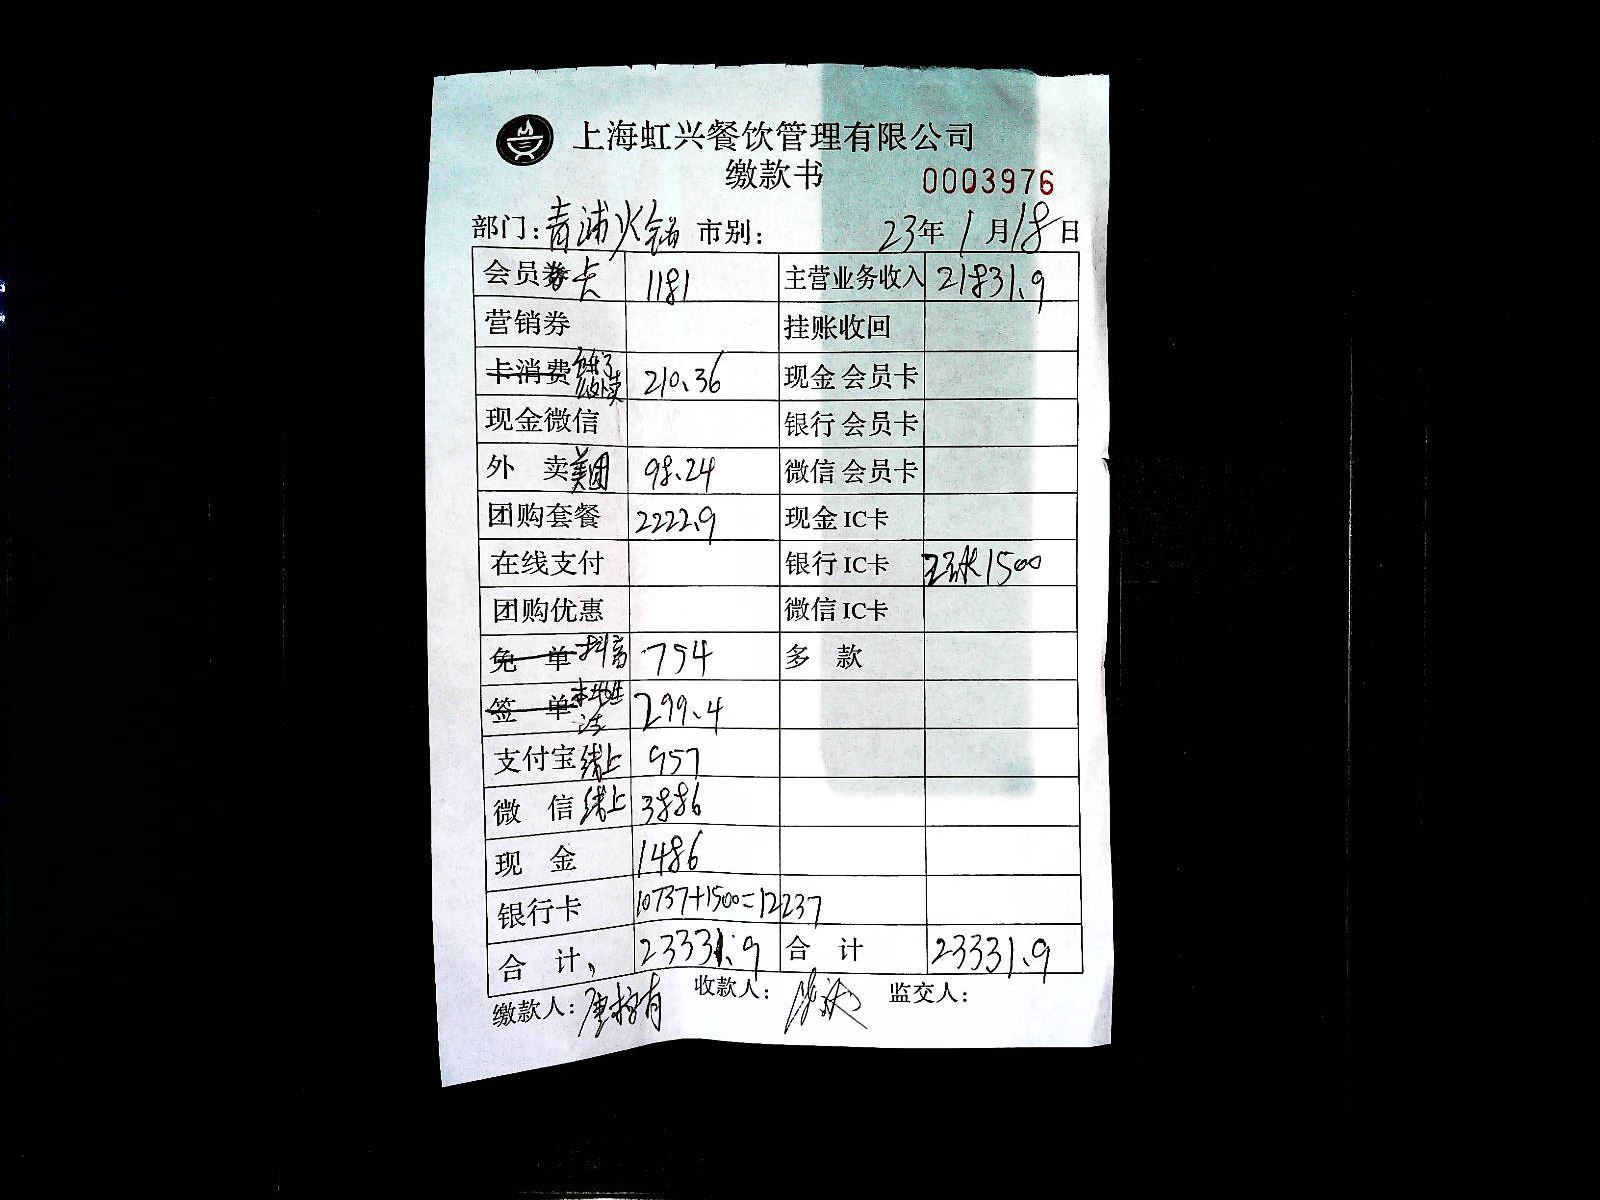 上海虹兴餐饮管理有限公司
缴款书 0003976
部门：青浦火锅 市别： 23年1月18日
会员卡 1181 主营业务收入 21831.9
营销券 挂账收回
卡消费 饿了么外卖 210.36 现金 会员卡
现金微信 银行 会员卡
外 卖 美团 98.24 微信 会员卡
团购套餐 2222.9 现金 IC卡
在线支付 银行 IC卡 1500
团购优惠 微信 IC卡
免 单 抖音 754 多 款
签 单 本地生活 299.4
支付宝 线上 957
微 信 线上 3886
现 金 1486
银行卡 10737+1500=12237
合 计 23331.9 合 计 23331.9
缴款人： 收款人： 监交人：